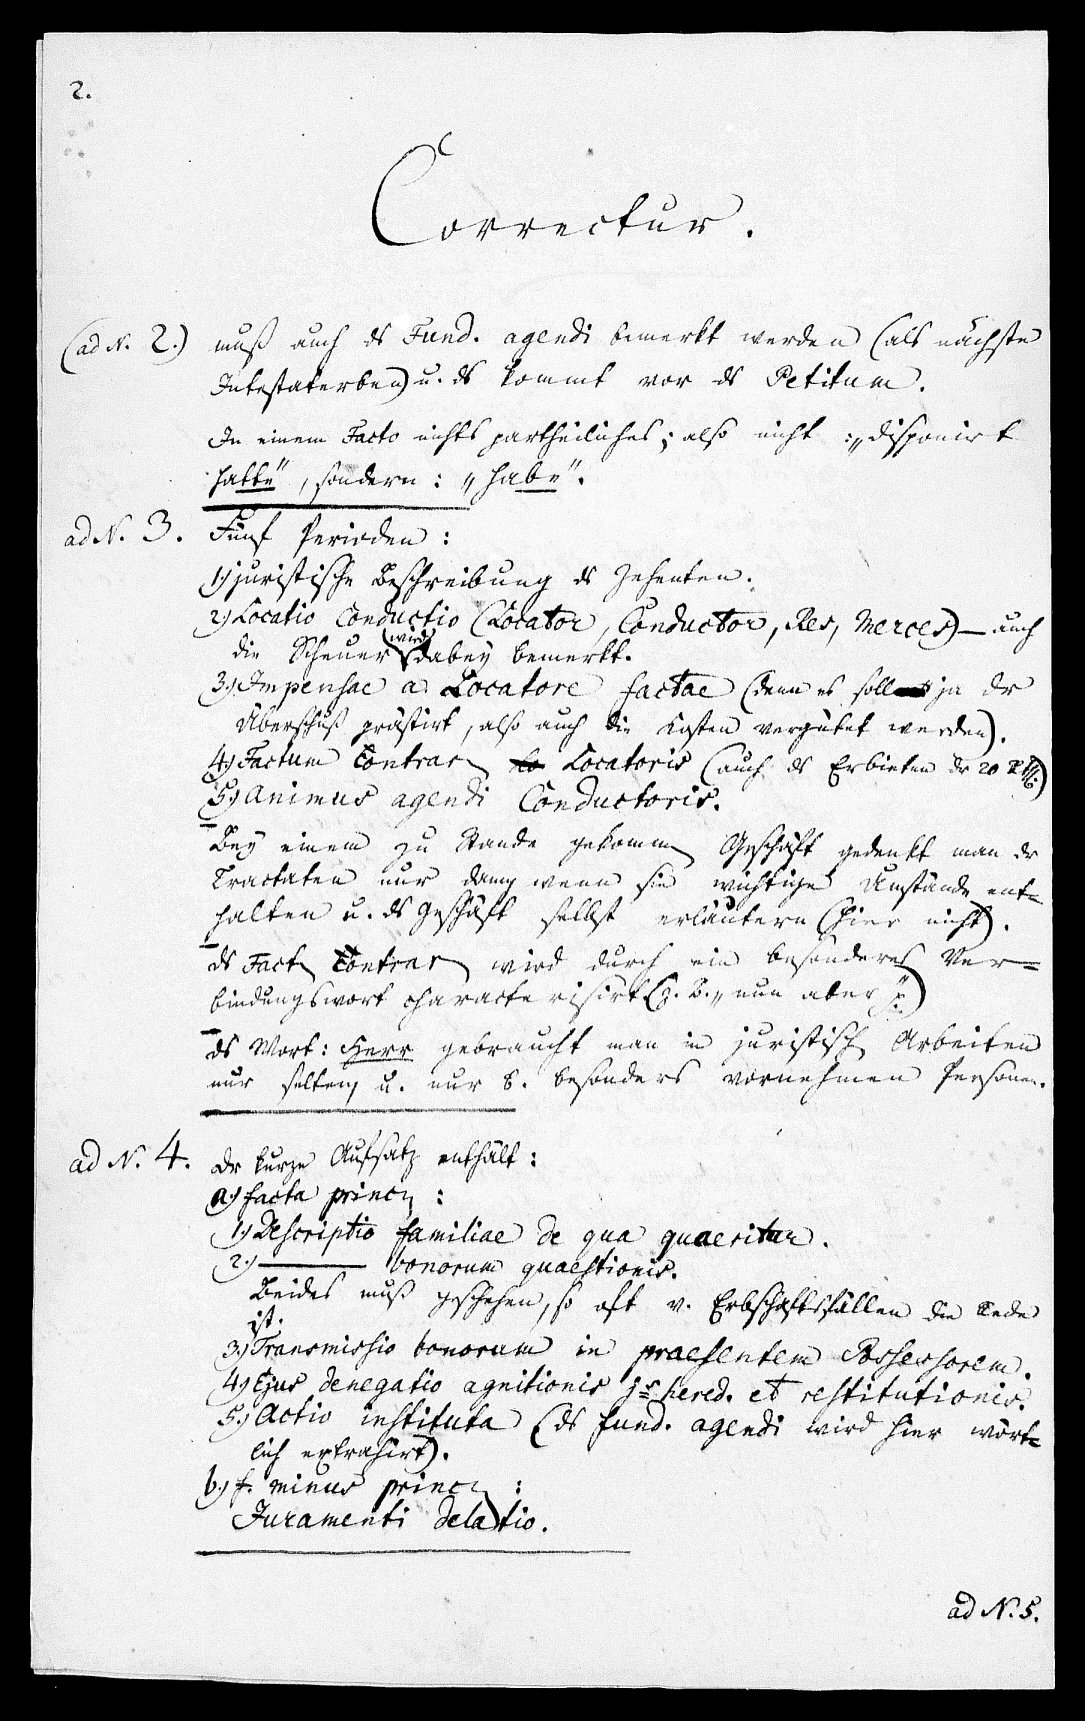 2.
Correctur.
(ad N. 2.) muß auch ds Fund. agendi bemerkt werden (als nächste
Intestaterben) u. ds kommt vor ds Petitum.
In einem Facto nichts partheiliches; also nicht: „disponirt
hatte“, sondern: „habe“.
ad N. 3. Fünf Perioden:
1.) juristische Beschreibung ds Zehenten.
2.) Locatio Conductio (Locator, Conductor, Res, Merces) – auch
die Scheuer (wird) dabey bemerkt.
3.) Impensae a Locatore factae (denn es soll ja dr
Überschuß prästirt, also auch die Kosten vergütet werden).
4.) Factum Contrar Locatoris (auch ds Erbieten dr 20
5.) Animus agendi Conductoris.
Bey einem zu Stande gekomm Geschäft gedenkt man dr
Tractaten nur dann wenn sie wichtige Umstände ent=
halten u. ds Geschäft selbst erläutern (hier nicht).
ds Fact Contrar wird durch ein besonderes Ver=
bindungswort characterisirt (z. B. „nun aber“
ds Wort: Herr gebraucht man in juristisch Arbeiten
nur selten u. nur b. besonders vornehmen Personen.
ad N. 4. Dr kurze Aufsatz enthält:
a.) facta princ:
1.) Descriptio familiae de qua quaeritur.
2.) ——— bonorum quaestionis.
Beides muß geschehen, so oft v. Erbschaftsfällen die Rede
ist.
3.) Transmissio bonorum in praesentem Possessorem.
4.) Ejus denegatio agnitionis hered. et restitutionis.
5.) Actio instituta (ds fund. agendi wird hier wört=
lich extrahirt).
b.) f. minus princ:
Juramenti delatio.
ad N. 5.